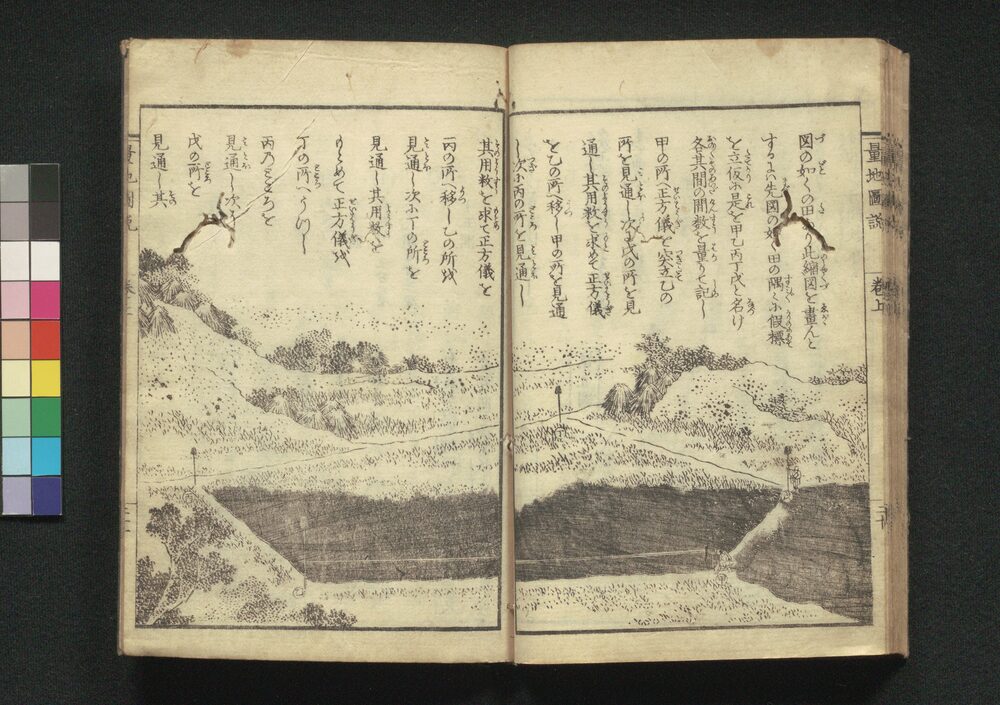 図の如くの田あり此縮図を畫んと
するには先図の如く田の隅々に假標
を立仮に是を甲乙丙丁戊と名け
各其間の間数を量りて記し
甲の所へ正方儀を突立乙の
所を見通し次に戊の所を見
通し其用数を求めて正方儀
を乙の所へ移し甲の所を見通
し次に丙の所を見通し
其用数を求て正方儀を
丙の所へ移し乙の所を
見通し次に丁の所を
見通し其用数を
もとめて正方儀を
丁の所へうつし
丙乃ところを
見通し次に
戊の所を
見通し其
量地圖説
巻上